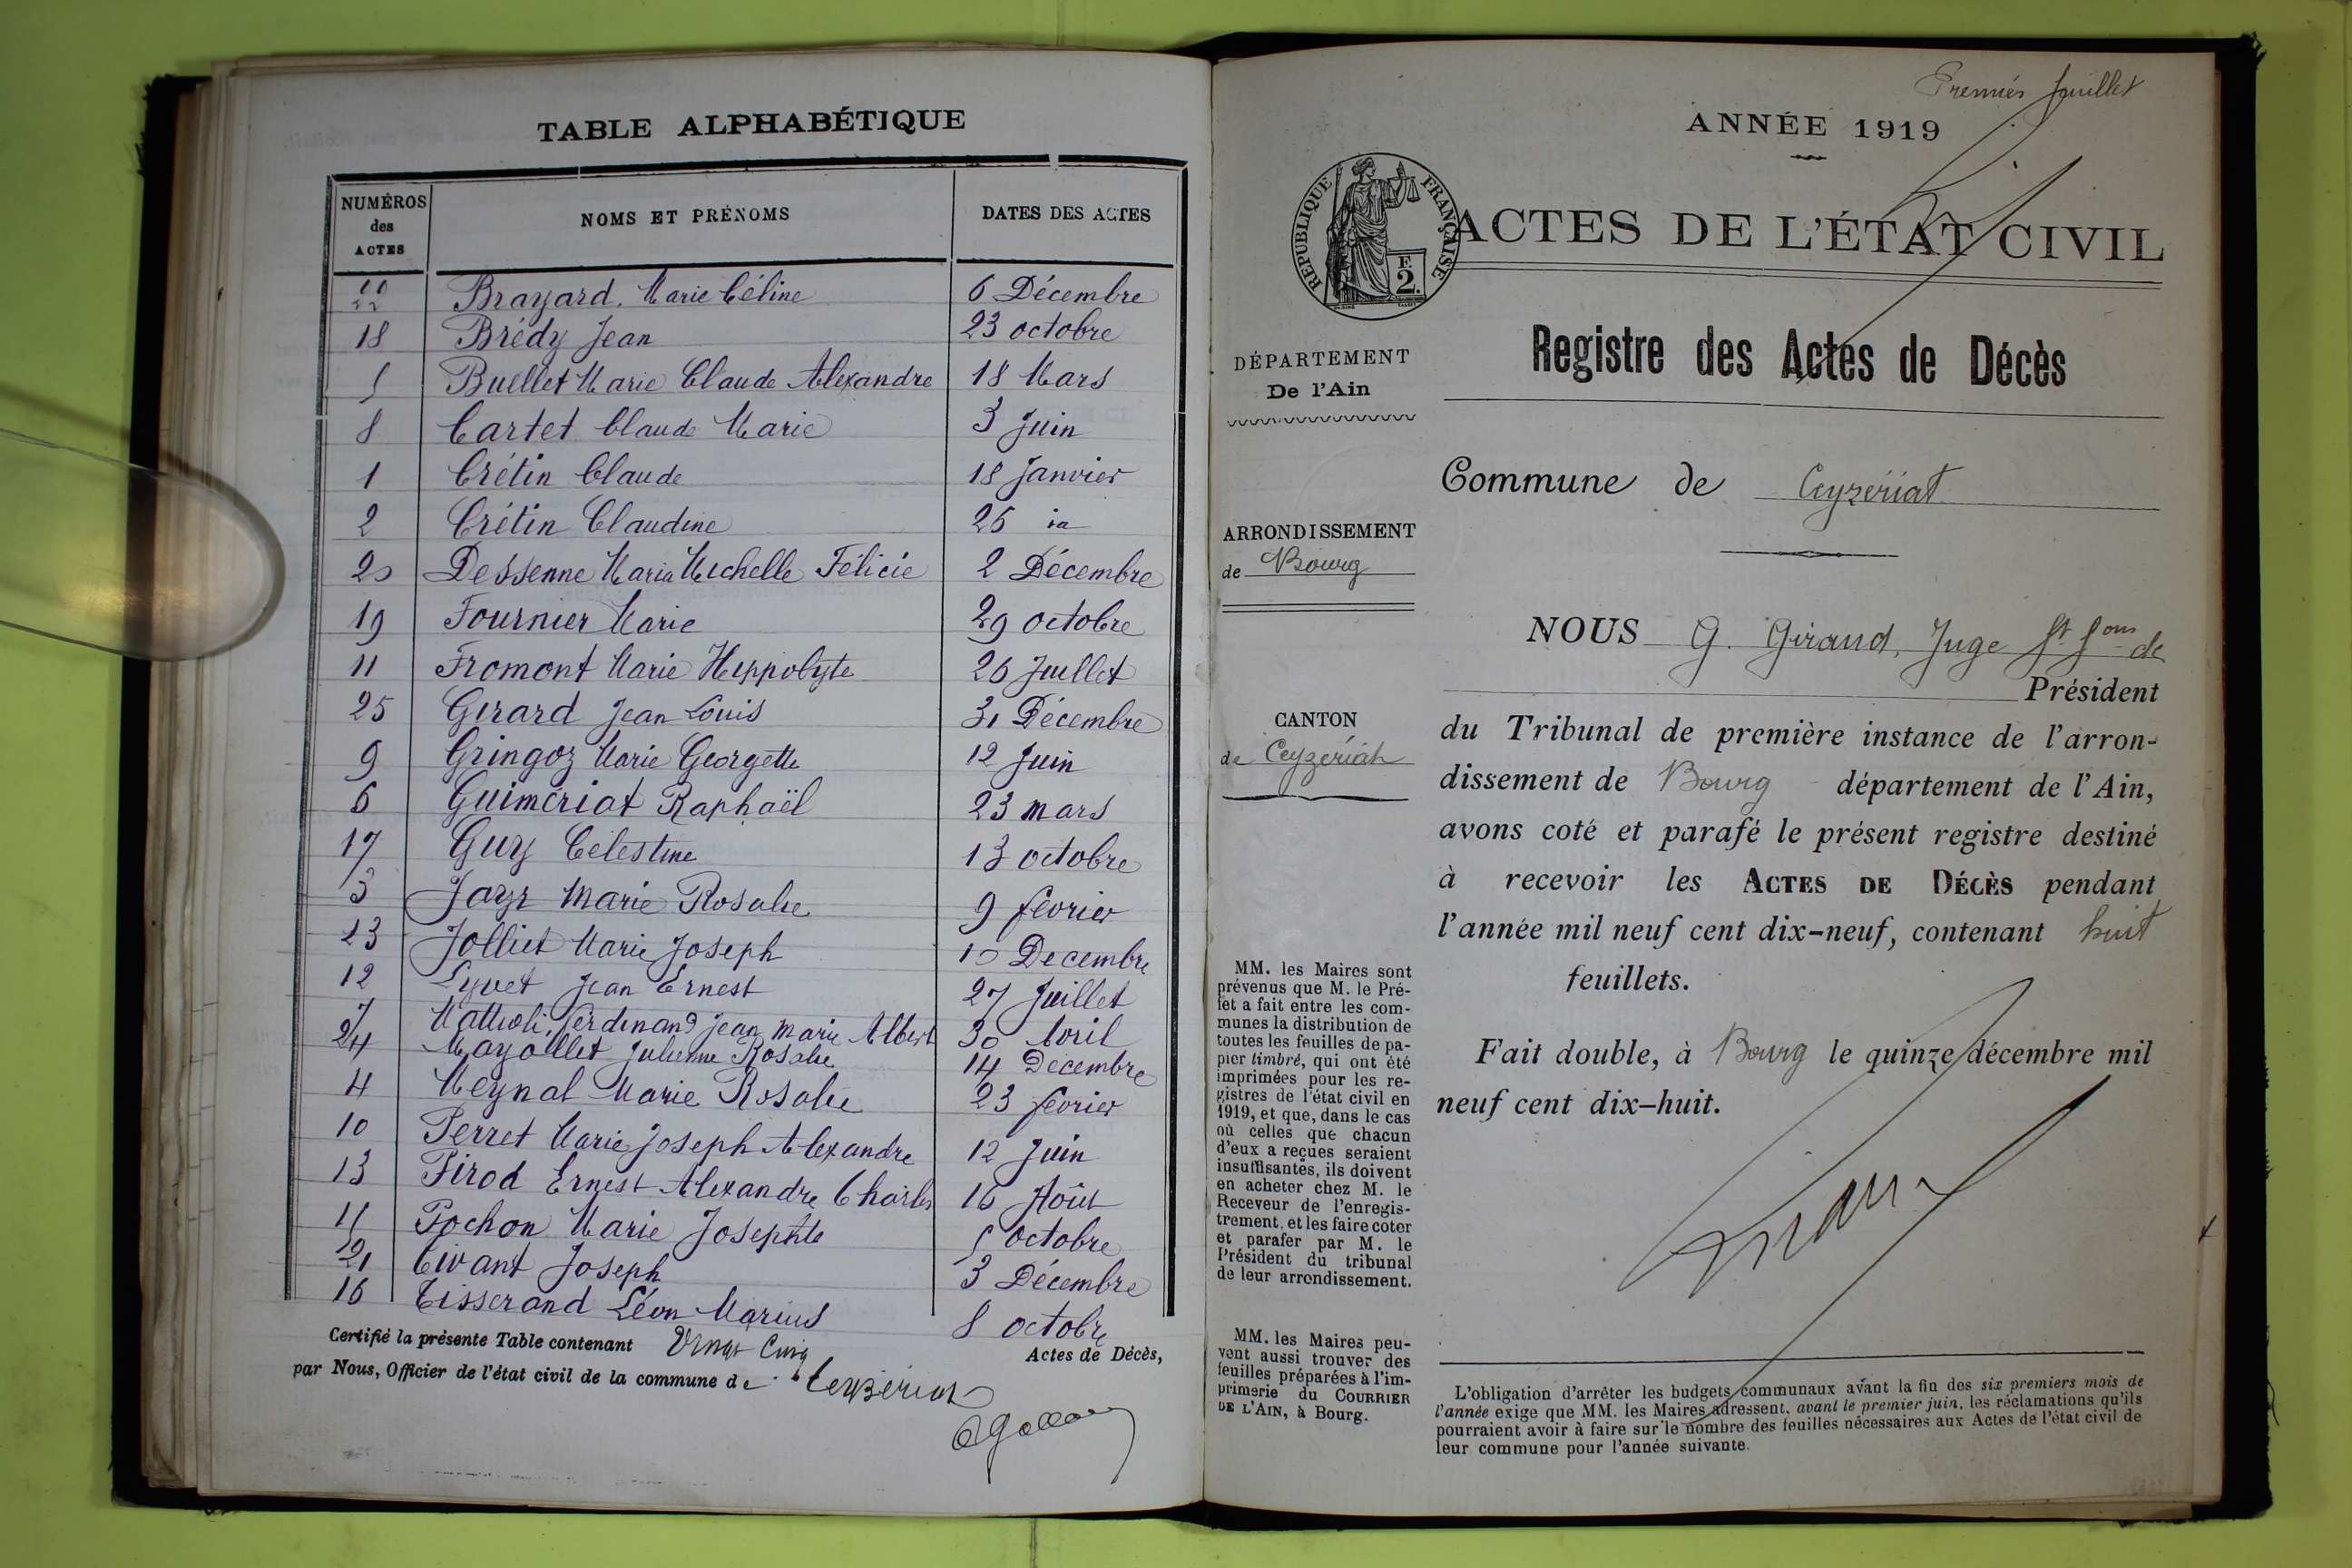 TABLE ALPHABÉTIQUE
NUMÉROS des ACTES NOMS ET PRÉNOMS DATES DES ACTES
22 Brayard Marie Céline 6 Décembre
18 Brédy Jean 23 octobre
5 Buellet Marie Claude Alexandre 18 Mars
8 Cartet Claude Marie 3 Juin
1 Crétin Claude 18 Janvier
2 Crétin Claudine 26
20 Dessenne Maria Michelle Félicie 2 Décembre
19 Fournier Marie 29 octobre
11 Fromont Marie Hippolyte 26 Juillet
25 Girard Jean Louis 31 Décembre
9 Gringoz Marie Georgette 12 Juin
6 Guimériat Raphaël 23 mars
17 Guy Célestine 13 octobre
3 Jayr Marie Rosalie 9 février
23 Jolliet Marie Joseph 10 Decembre
12 Lyvet Jean Ernest 27 Juillet
7 Ferdinand Jean Marie Albert 30 Avril
24 Mayollet Julienne Rosalie 14 Decembre
4 Meynal Marie Rosalie 23 février
10 Perret Marie Joseph Alexandre 12 Juin
13 Pirod Ernest Alexandre Charles 16 Août
Pochon Marie Josephte 5 octobre
21 Tivant Joseph 3 Décembre
16 Tisserand Léon Marius 8 octobre
Certifié la présente Table contenant Vingt Cinq Actes de Décès,
par Nous, Officier de l'état civil de la commune de Ceyzériat
Premier feuillet
ANNÉE 1919
RÉPUBLIQUE FRANÇAISE
F. 2.
ACTES DE L'ÉTAT CIVIL
Registre des Actes de Décès
DÉPARTEMENT
De l'Ain
Commune de Ceyzériat
ARRONDISSEMENT
de Bourg
CANTON
de Ceyzériat
NOUS G. Giraud, Juge de
Président
du Tribunal de première instance de l'arron-
dissement de Bourg département de l'Ain,
avons coté et parafé le présent registre destiné
à recevoir les ACTES DE DÉCÈS pendant
l'année mil neuf cent dix-neuf, contenant huit
feuillets.
Fait double, à Bourg le quinze décembre mil
neuf cent dix-huit.
MM. les Maires sont
prévenus que M. le Pré-
fet a fait entre les com-
munes la distribution de
toutes les feuilles de pa-
pier timbré, qui ont été
imprimées pour les re-
gistres de l'état civil en
1919, et que, dans le cas
où celles que chacun
d'eux a reçues seraient
insuffisantes, ils doivent
en acheter chez M. le
Receveur de l'enregis-
trement, et les faire coter
et parafer par M. le
Président du tribunal
de leur arrondissement.
MM. les Maires peu-
vent aussi trouver des
feuilles préparées à l'im-
primerie du COURRIER
DE L'AIN, à Bourg.
L'obligation d'arrêter les budgets communaux avant la fin des six premiers mois de
l'année exige que MM. les Maires adressent, avant le premier juin, les réclamations qu'ils
pourraient avoir à faire sur le nombre des feuilles nécessaires aux Actes de l'état civil de
leur commune pour l'année suivante.